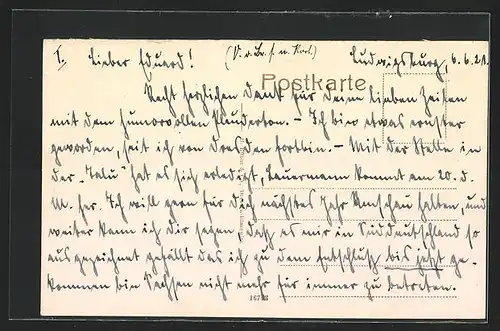 I. Lieber Eduard! (V. v. Br. f. u. Korb.) Ludwigsburg, 6.6.21.
Postkarte
Recht herzlichen Dank für Deine lieben Zeilen
mit dem humorvollen Plauderton. – Ich bin etwas ernster
geworden, seit ich von Dresden fortbin. – Mit der Stelle in
der „Tolu" hat es sich erledigt, Lauermann kommt am 20. d.
M. her. Ich will gern für Dich nächstes Jahr Umschau halten, und
weiter kann ich Dir sagen, daß es mir in Süddeutschland so
ausgezeichnet gefällt das ich zu dem Entschluß bis jetzt ge-
kommen bin Sachsen nicht mehr für immer zu betreten.